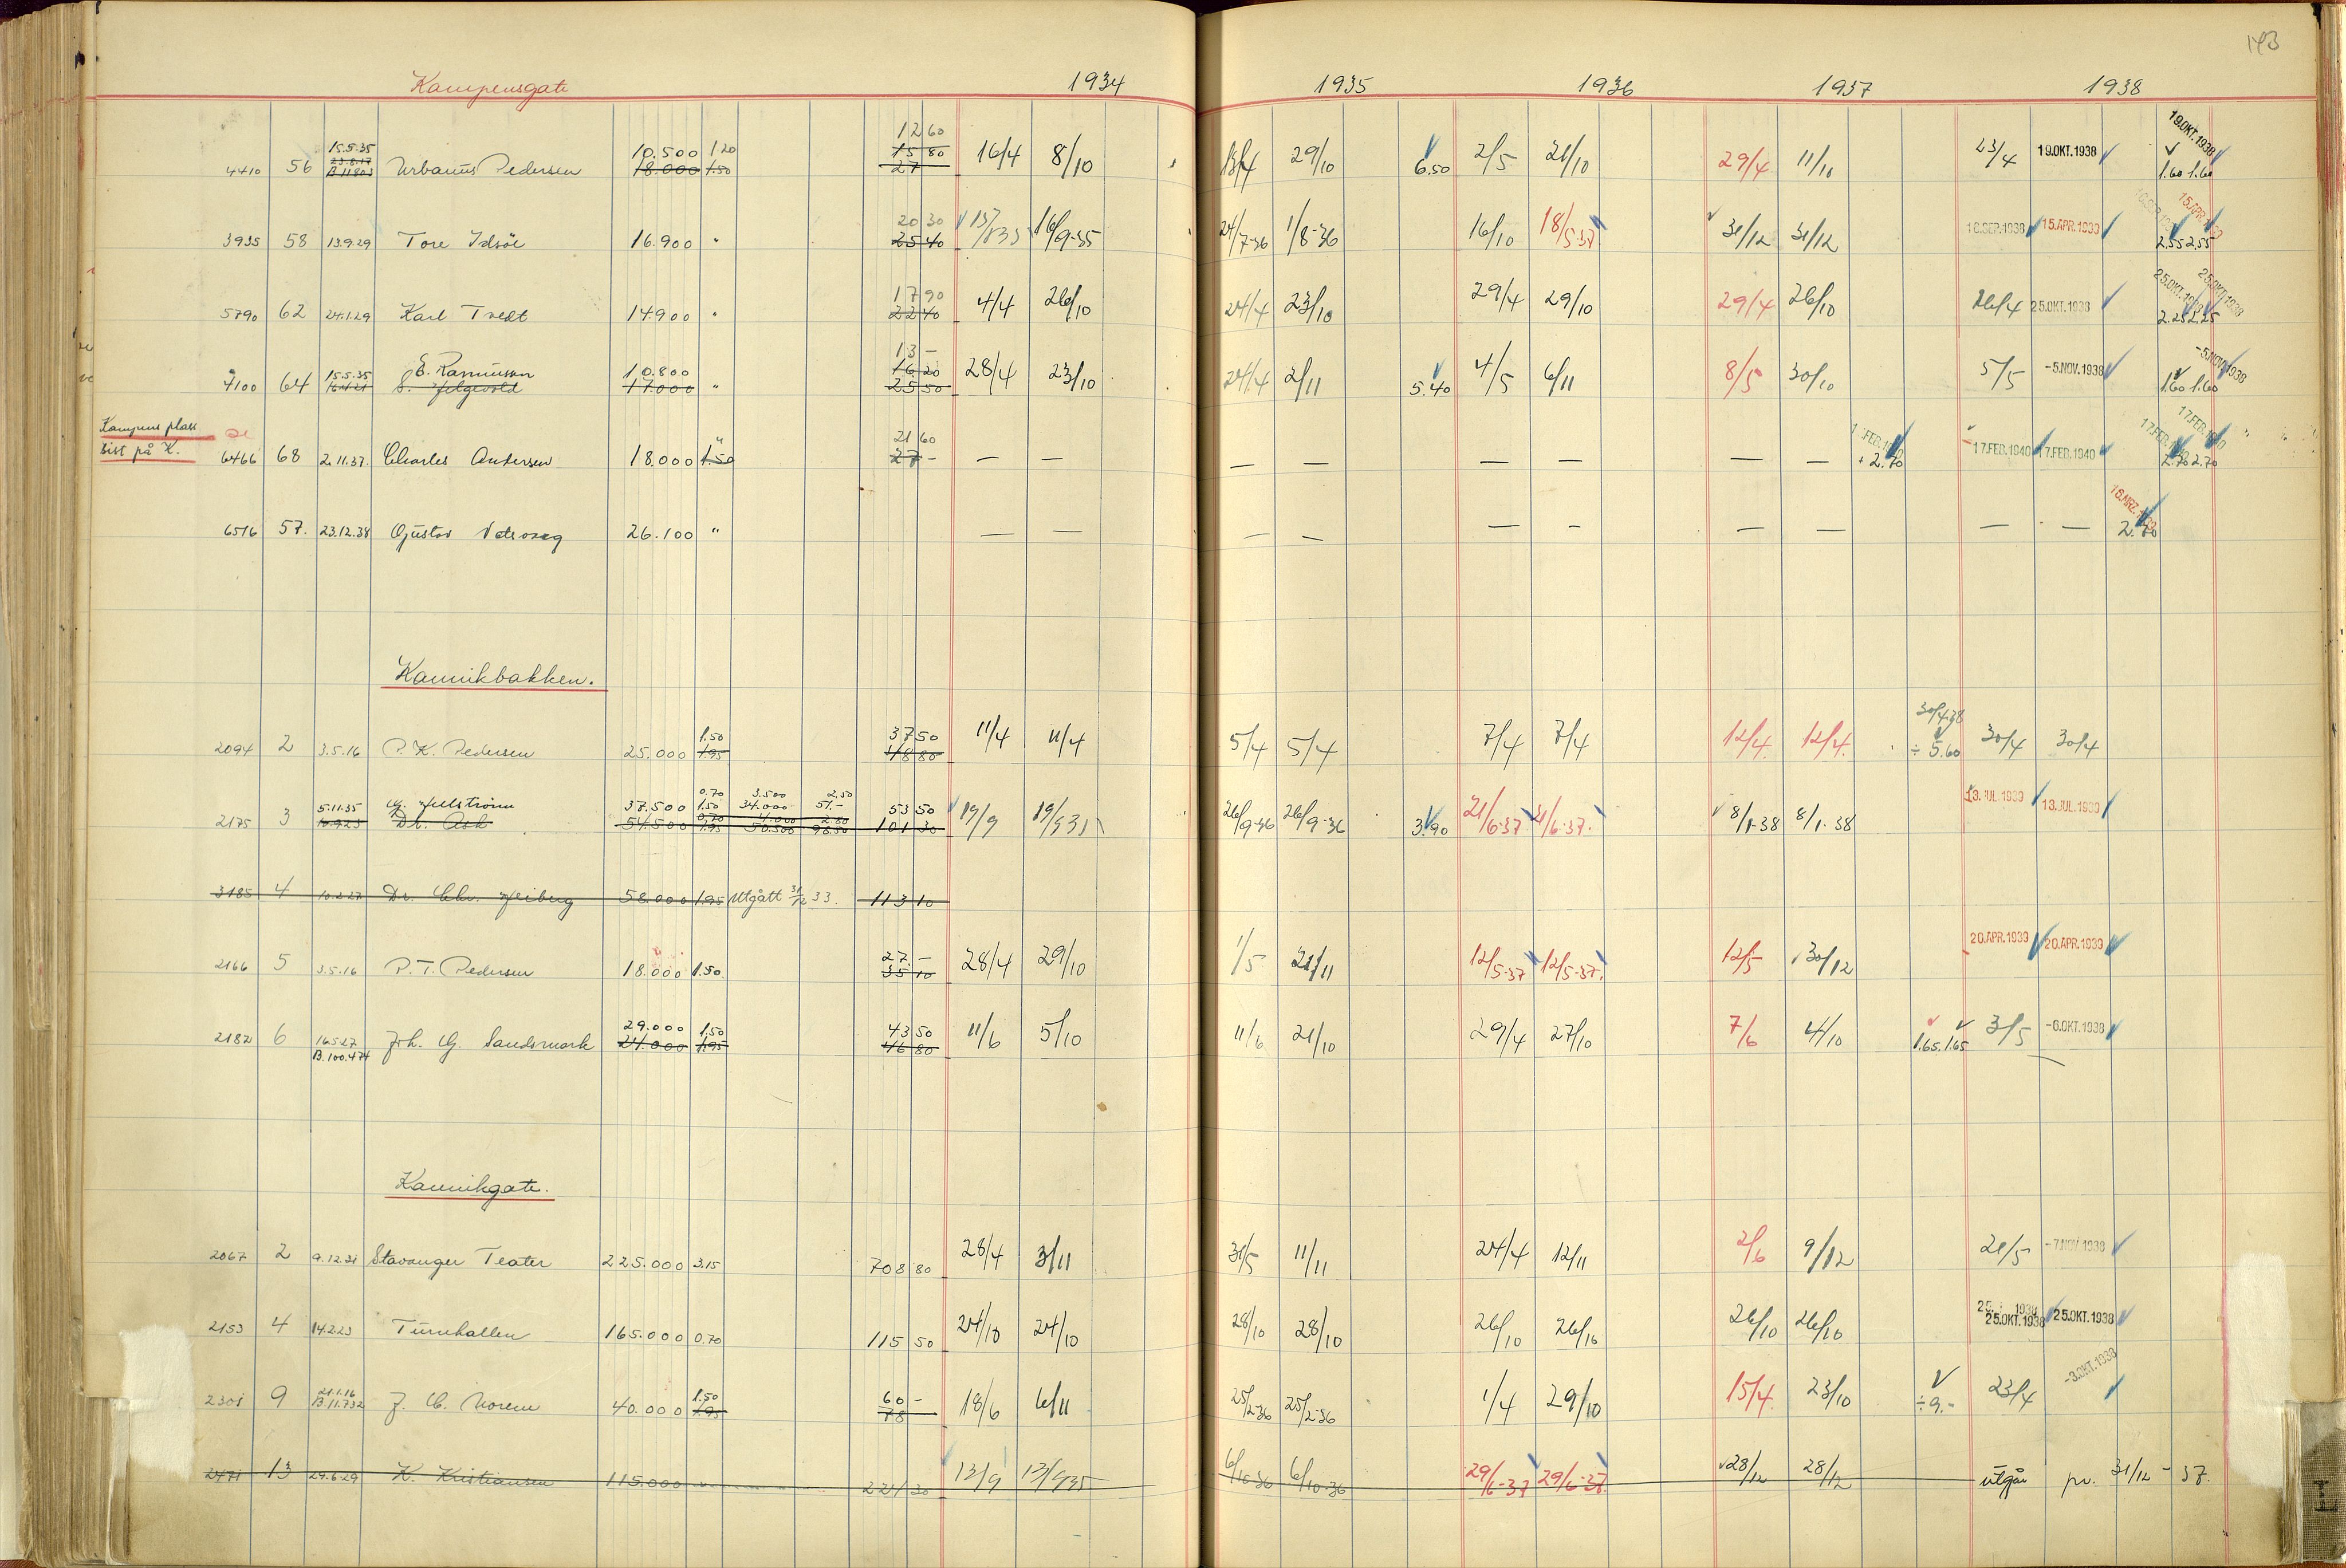 143
Kampensgate 1934 1935 1936 1937 1938
15.5.35 10.500 1.20 12 60
23.8.17 15 80
4410 56 B.11803 Urbanus Pedersen 18.000 1.50 27 16/4 8/10 29/10 6.50 2/5 21/10 29/4 11/10 23/4 19.OKT.1938 19.OKT.1938 1.60 1.60
20 30
3935 58 13.9.29 Tore Idsöe 16.900 " 25 40 16/9-35 24/7-36 1/8-36 16/10 18/5-37 31/12 31/12 15.APR.1939 2.55 2.55
17 90
5790 62 24.1.29 Karl Tvedt 14.900 " 22 40 4/4 26/10 24/4 23/10 29/4 29/10 29/4 26/10 26/4 25.OKT.1938 25.OKT.1938 25.OKT.1938 2.25 2.25
15.5.35 E. Rasmussen 10.800 13 -
16 20
7100 64 17.000 " 25 50 28/4 23/10 24/4 2/11 5.40 4/5 6/11 8/5 30/10 5/5 -5.NOV.1938 -5.NOV.1938 1.60 1.60
Kampens plass
sist på K.
21 60
6466 68 2.11.37. Charles Andersen 18.000 1.50 27 - — — — — — — — — + 2.70 17.FEB.1940 17.FEB.1940 17.FEB. 17.FEB. 2.70 2.70
6516 57. 23.12.38 Gustav 26.100 " — — — — — - — — — — 2.70
Kannikbakken.
1.50 37 50 30/4-38
2094 2 3.5.16 P. K. Pedersen 25.000 1.95 48 80 11/4 11/4 5/4 5/4 7/4 7/4 12/4 12/4. ÷ 5.60 30/4 30/4
5.11.35 37.500 0.70 1.50 3.500 34.000 2.50 51.- 53 50
2175 3 10.9.23 Dr. Ask 54.500 0.70 1.95 4.000 50.500 2.80 98.50 101 30 19/9 19/9 35 26/9-36 26/9-36 3.90 21/6-37 21/6-37. 8/1-38 8/1-38 13.JUL.1939 13.JUL.1939
3185 4 10.2.27 Dr. Chr. Heiberg 58.000 1.95 Utgått 31/12 33. 113 10
27 -
2166 5 3.5.16 P. T. Pedersen 18.000 1.50 35 10 28/4 29/10 1/5 21/11 12/5-37 12/5-37. 12/5 30/12 20.APR.1939 20.APR.1939
29.000 1.50 43 50
2182 6 16.5.27 Joh. G. Sandsmark 24.000 1.95 46 80 11/6 5/10 11/6 21/10 29/4 27/10 7/6 4/10 1.65. 1.65 3/5 -6.OKT.1938
B.100.474
Kannikgate.
2067 2 9.12.31 Stavanger Teater 225.000 3.15 708 80 28/4 3/11 31/5 11/11 24/4 12/11 2/6 9/12 21/5 -7.NOV.1938
2153 4 14.2.23 Turnhallen 165.000 0.70 115 50 24/10 24/10 28/10 28/10 26/10 26/10 26/10 26/10 25.OKT.1938 25.OKT.1938
21.1.16 1.50 60 -
2301 9 B.11.732 J. C. Norem 40.000 1.95 78 18/6 6/11 25/2-36 25/2-36 1/4 29/10 15/4. 23/10 ÷ 9.- 23/4 -3.OKT.1938
2471 13 29.6.29 K. Kristiansen 115.000 " 224 30 13/9 13/9 35 6/10-36 6/10-36 29/6-37 29/6-37. 28/12 28/12 utgår pr. 31/12 - 37.